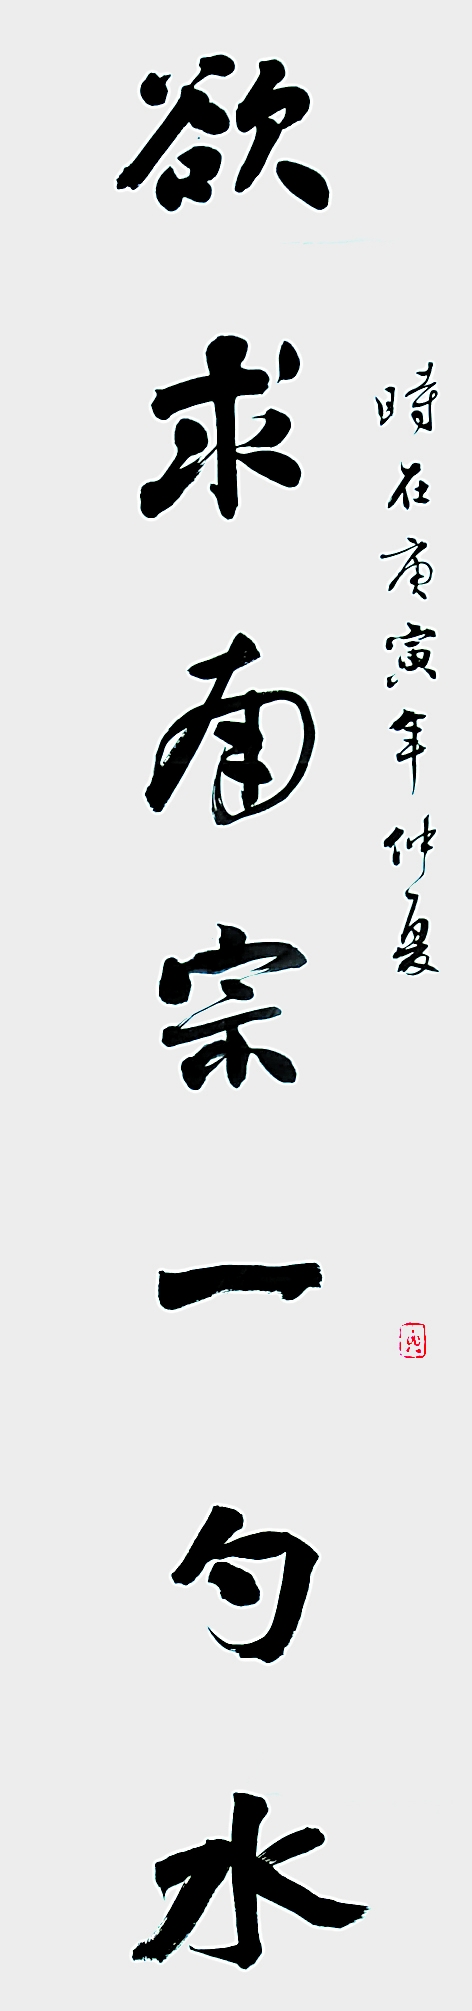 時在庚寅年仲夏
欲求南宗一勺水